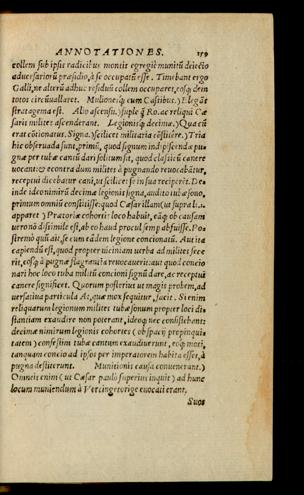 ANNOTATIONES. 159
collem sub ipsis radicibus montis egregiè munitũ deiectio
aduersariorũ præsidio, à se occupatũ esse. Timebant ergo
Galli, ne alterũ adhuc residuũ collem occuparet, eosq; dein
totos circũuallaret. Mulioneſq; cum Caſsibus.) Elegãs
stratagema est. Alio ascensu.) suple q̃ Ro. ac reliqui Cæ
saris milites ascenderant. Legionisq́; decimæ.) Qua cũ
erat cõtionatus. Signa.) scilicet militaria cõstitêre.) Tria
hic obseruada sunt, primũ, quod signum indipiscendæ pu
gnæ per tubæ cantũ dari solitum sit, quod classicũ canere
vocant: & econtra dum milites à pugnando reuocabãtur,
receptui dicebatur cani, ut scilicet se in sua reciperẽt. De
inde ideo nimirũ decimæ legionis signa, audito tubæ sono,
primum omniũ constitisse: quod Cæsar illam (ut supra li. 1.
apparet) Prætoriæ cohortis loco habuit, eãq; ob causam
uero nõ dissimile est, ab eo haud procul semp abfuisse. Po
stremò quũ ait, se cum eadem legione concionatũ. Aut ita
capiendũ est, quod propter uiciniam uerba ad milites fece
rit, eosq; à pugnæ flagrantia reuocauerit: aut quod concio
nari hoc loco tuba militũ concioni signũ dare, ac receptui
canere significet. Quorum posterius ut magis probem, ad
uersatiua particula At, quæ mox sequitur, facit. Si enim
reliquarum legionum milites tubæ sonum propter loci di-
stantiam exaudire non poterant, ideoq́; nec constitebant:
decimæ nimirum legionis cohortes (ob spacij propinqui-
tatem) confestim tubæ cantum exaudiuerunt, eoq́; moti,
tanquam concio ad ipsos per imperatorem habita esset, à
pugna destiterunt. Munitionis causa conuenerant.)
Omneis enim (ut Cæsar paulò superius inquit) ad hunc
locum muniendum à Vercingetorige euocati erant,
Suos